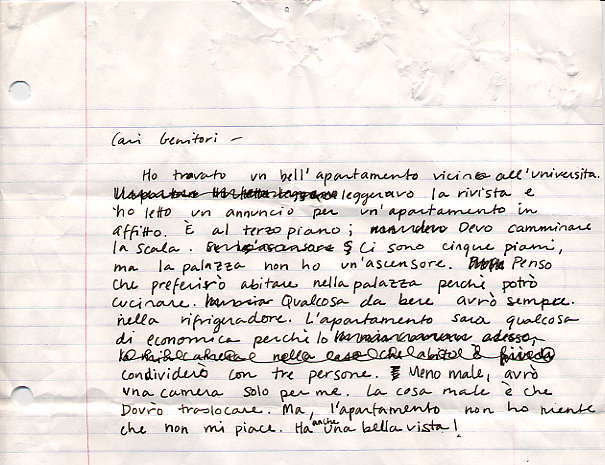 Cari Genitori –
Ho trovato un bell'apartamento vicino all'universita.
leggeravo la rivista e
ho letto un annuncio per un'apartamento in
affitto. È al terzo piano; Devo camminare
la scala. Ci sono cinque piani,
ma la palazza non ho un'ascensore. Penso
che preferirò abitare nella palazza perchè potrò
cucinare. Qualcosa da bere avrò sempre
nella rifrigeradore. L'apartamento sara qualcosa
di economica perchè lo
condividerò con tre persone. Meno male, avrò
una camera solo per me. La cosa male è che
Dovrò traslocare. Ma, l'apartamento non ho niente
che non mi piace. Ha anche una bella vista!